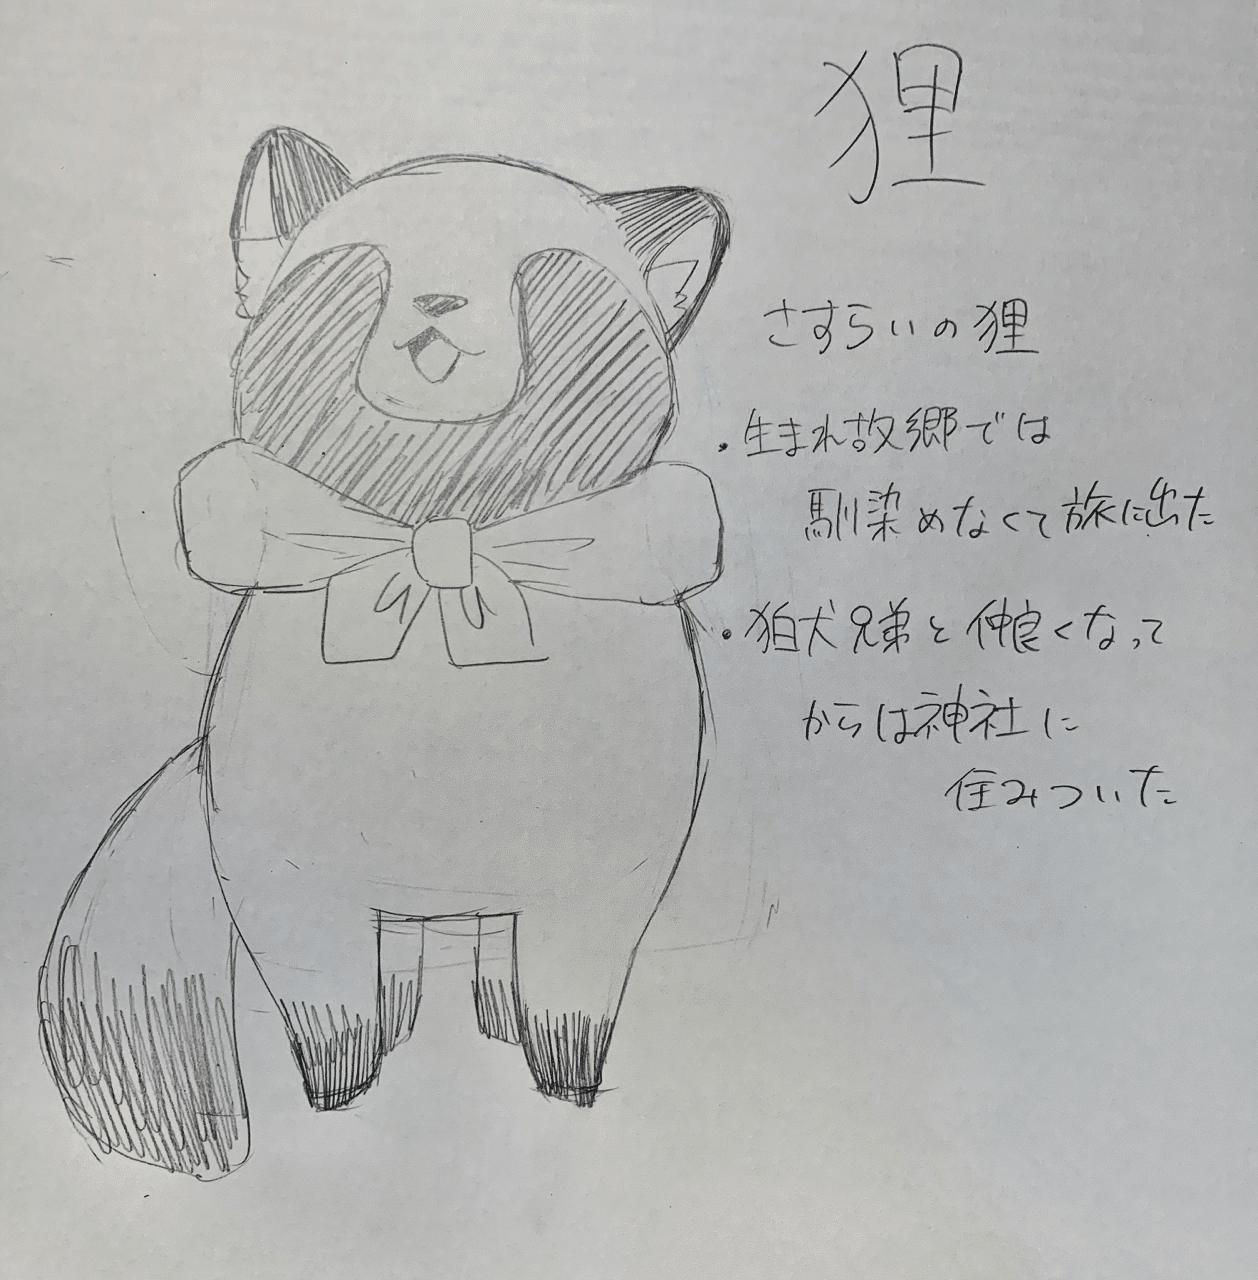 狸
さすらいの狸
・生まれ故郷では
馴染めなくて旅に出た
・狛犬兄弟と仲良くなって
からは神社に
住みついた